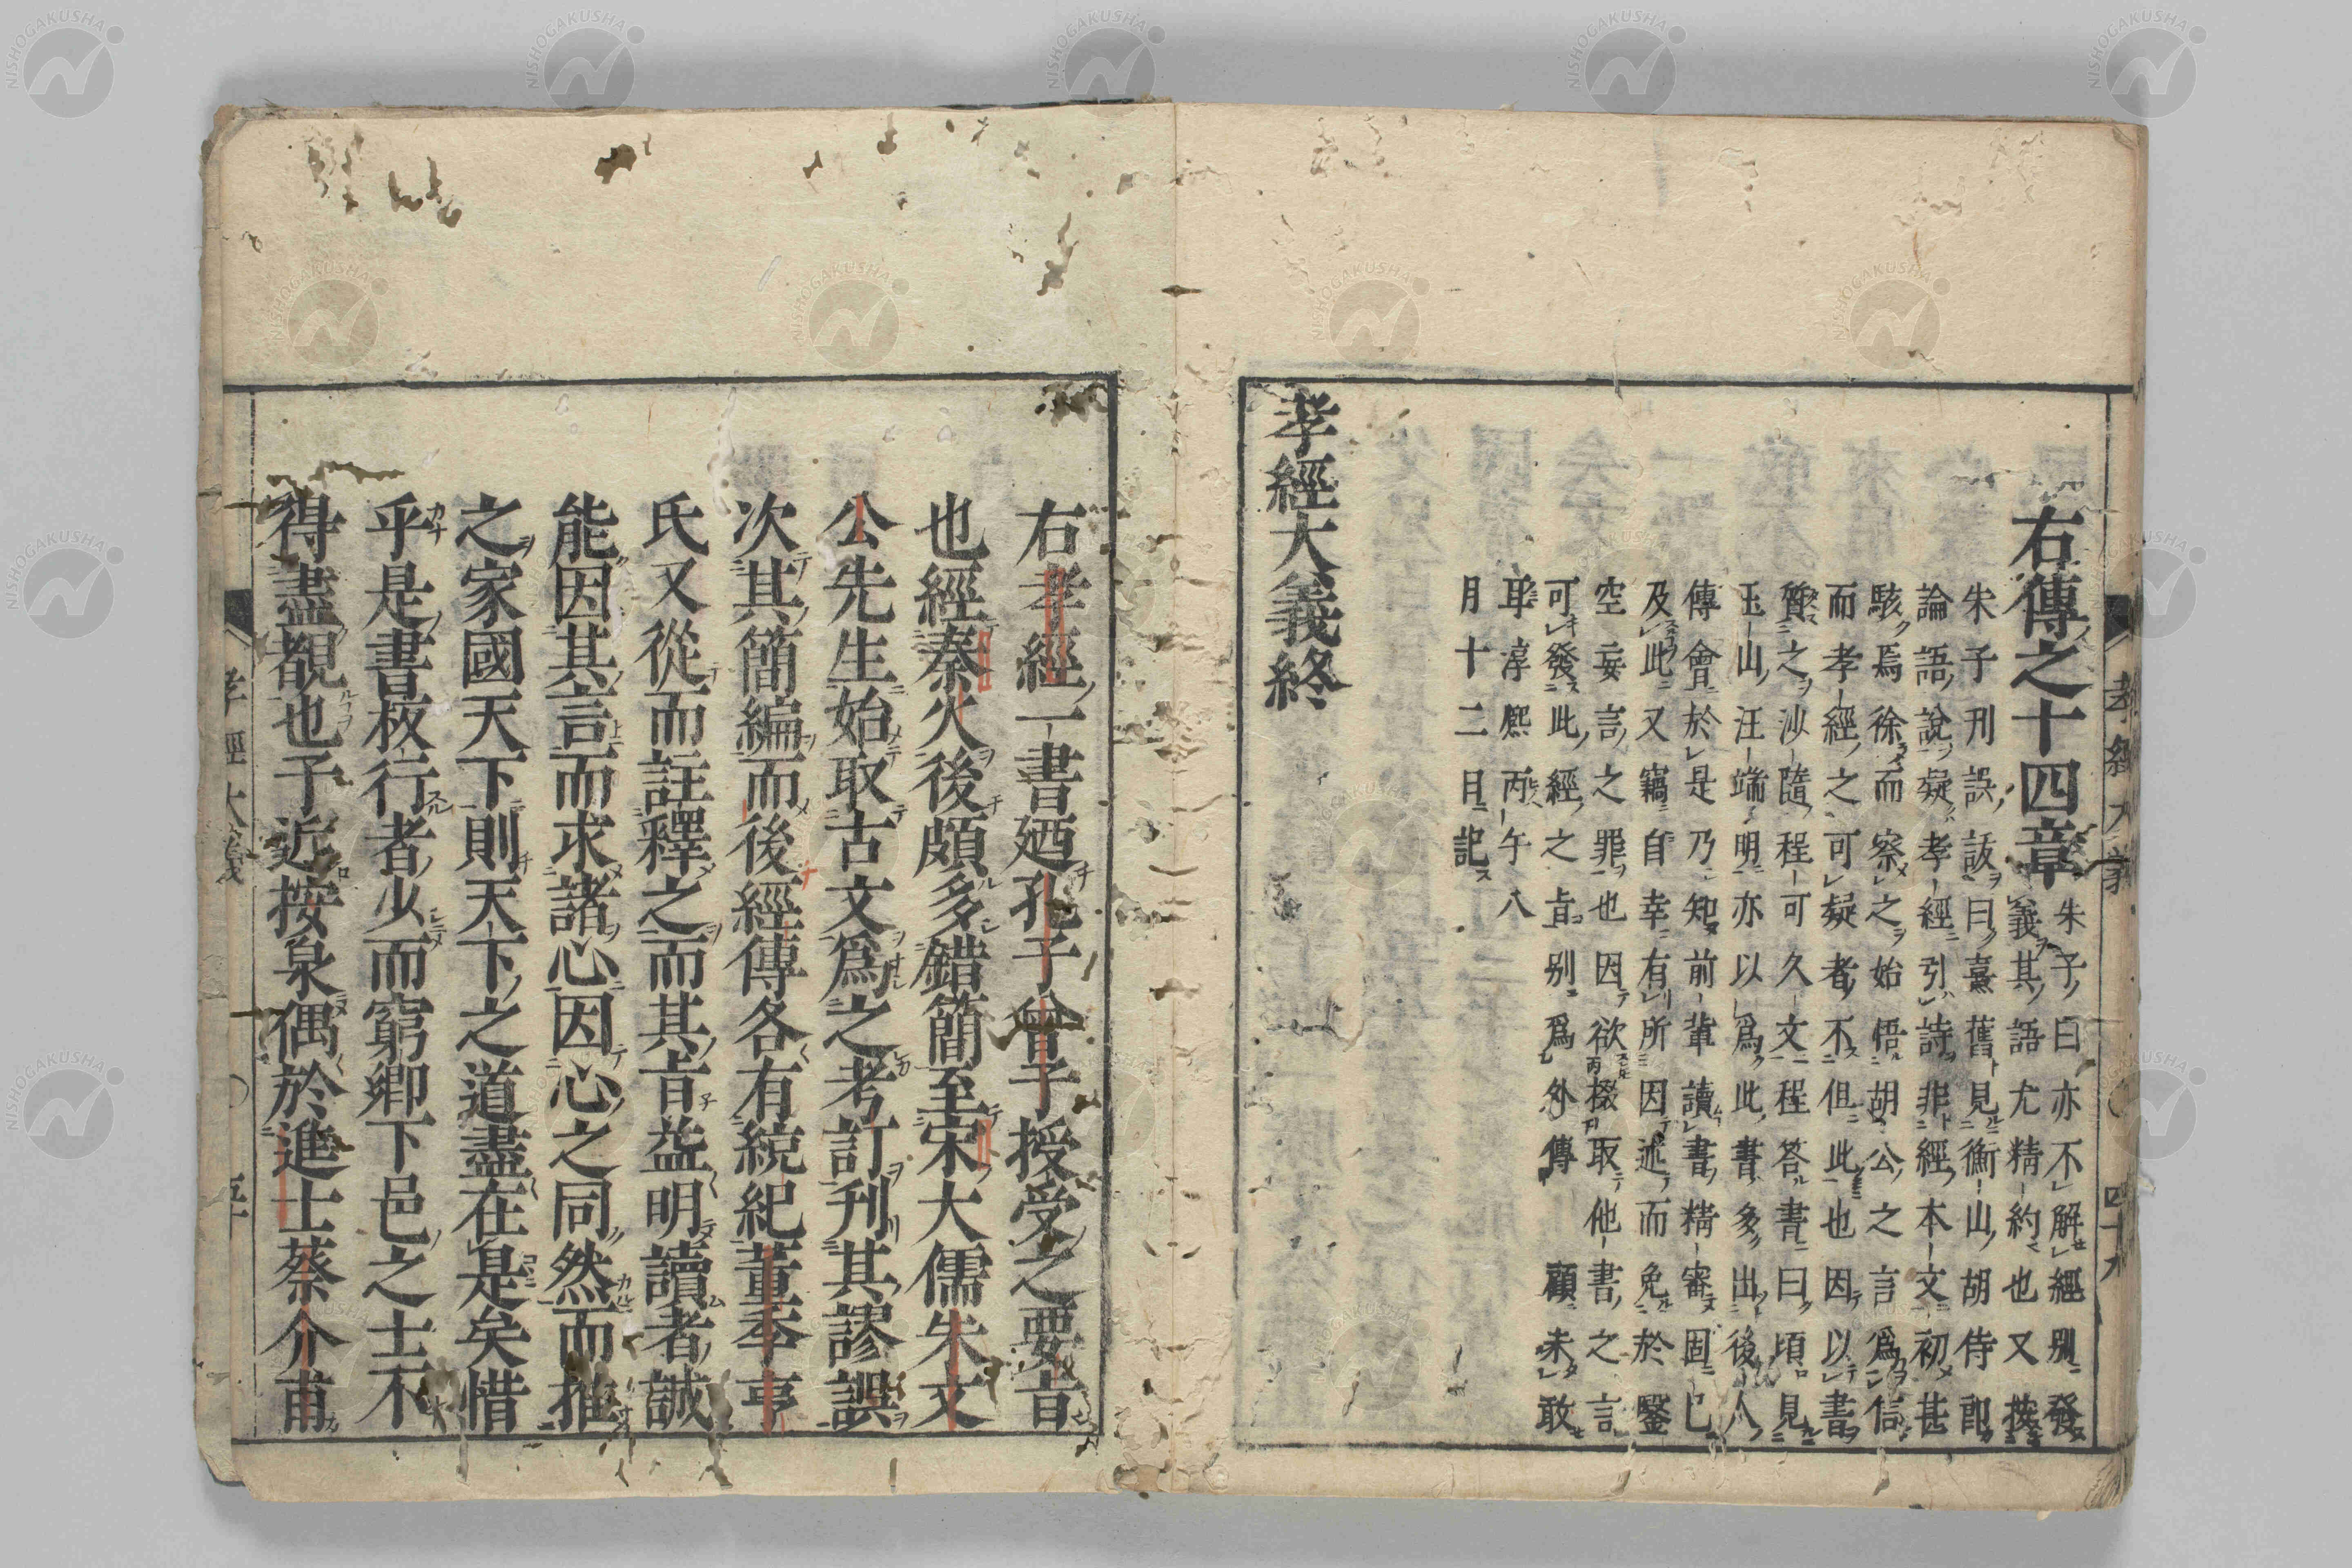 孝經大義
右傳之十四章
朱子曰亦不解經別發
義其語尤精約也又按
朱子刊誤跋曰熹舊見衡山胡侍郎
論語說疑孝經引詩非經本文初甚
駭焉徐而察之始悟胡公之言爲信
而孝經之可疑者不但此也因以書
質之沙隨程可久文程答書曰頃見
玉山汪端明亦以爲此書多出後人
傳會於是乃知前輩讀書精審固已
及此又竊自幸有所因述而免於鑿
空妄言之罪也因欲掇取他書之言
可發此經之旨別爲外傳 顧未敢
耳淳熙丙午八
月十二日記
孝經大義終
右孝經一書廼孔子曾子授受之要旨
也經秦火後頗多錯簡至宋大儒朱文
公先生始取古文爲之考訂刊其謬誤
次其簡編而後經傳各有統紀董季亨
氏又從而註釋之而其旨益明讀者誠
能因其言而求諸心因心之同然而推
之家國天下則天下之道盡在是矣惜
乎是書板行者少而窮鄉下邑之士不
得盡覩也予近按泉偶於進士蔡介甫
孝經大義
NISHOGAKUSHA